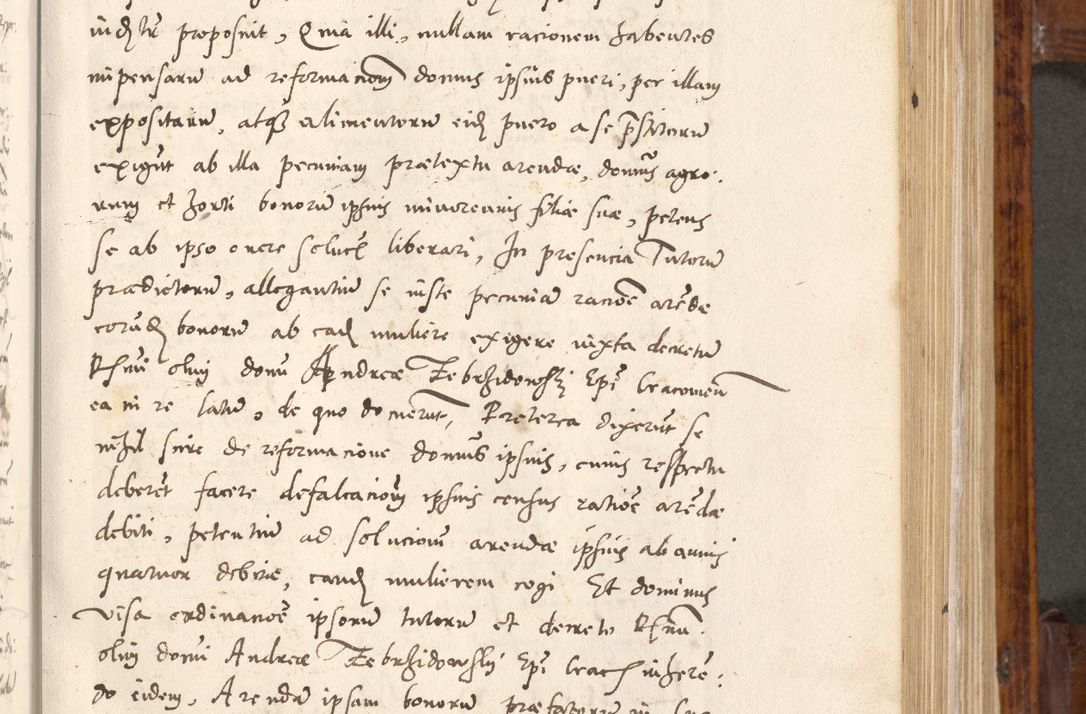 indtur proposuit, Quia illi, nullam racionem habentes
inpensarũ ad reformacionẽ domus ipsius pueri, per illam
expositarũ, atq3 alimentorũ eidẽ puero a se p̃stitorũ
exigũt ab illa pecuniam prætextu arendæ, domũs agro:
rum et horti bonorũ ipsius minorennis filiæ suæ, petens
se ab ipso onere solucõ liberari, In presencia Tutorũ
prædictorũ, allegantiũ se iuste pecuniã racioẽ arẽdæ
eorũd bonorũ ab eadẽ muliere exigere iuxta decretũ
Rsmi olim domi Andreæ Zebrzidowskj Epĩ Cracovieñ
ea in re latũ, de quo docuerũt, Preterea dixerũt se
nihil scire de reformacione domũs ipsius, cuius respectu
deberẽt facere defalcacionẽ ipsius census ratioẽ arẽdæ
debiti, petentiũ ad solucionẽ arendæ ipsius ab annis
quatuor debitæ, eandẽ mulierem cogi Et dominus
visa ordinacioẽ ipsorũ tutorũ et decreto Rsmi:
olim domi Andreæ Zebrzidowskj Epĩ Crac inhærẽ:
do eidem, Arendã ipsam bonorũ præfatorũ in